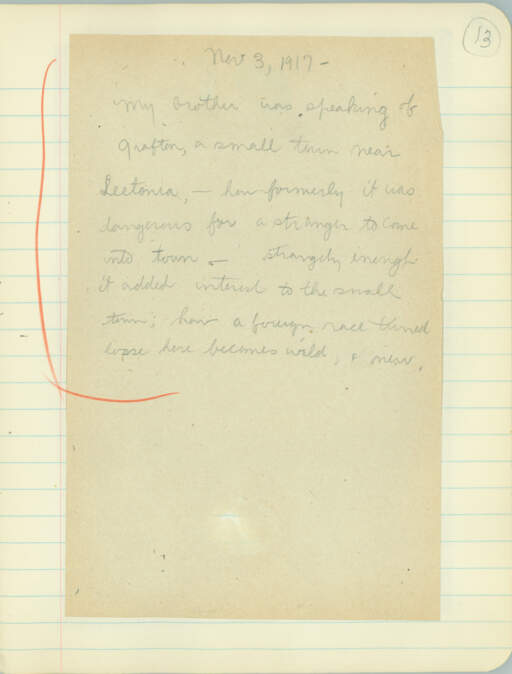 13
Nov 3, 1917 –
my brother was speaking of
Grafton, a small town near
Leetonia, – how formerly it was
dangerous for a stranger to come
into town – strangely enough
it added interest to the small
town; how a foreign race turned
loose here becomes wild, &